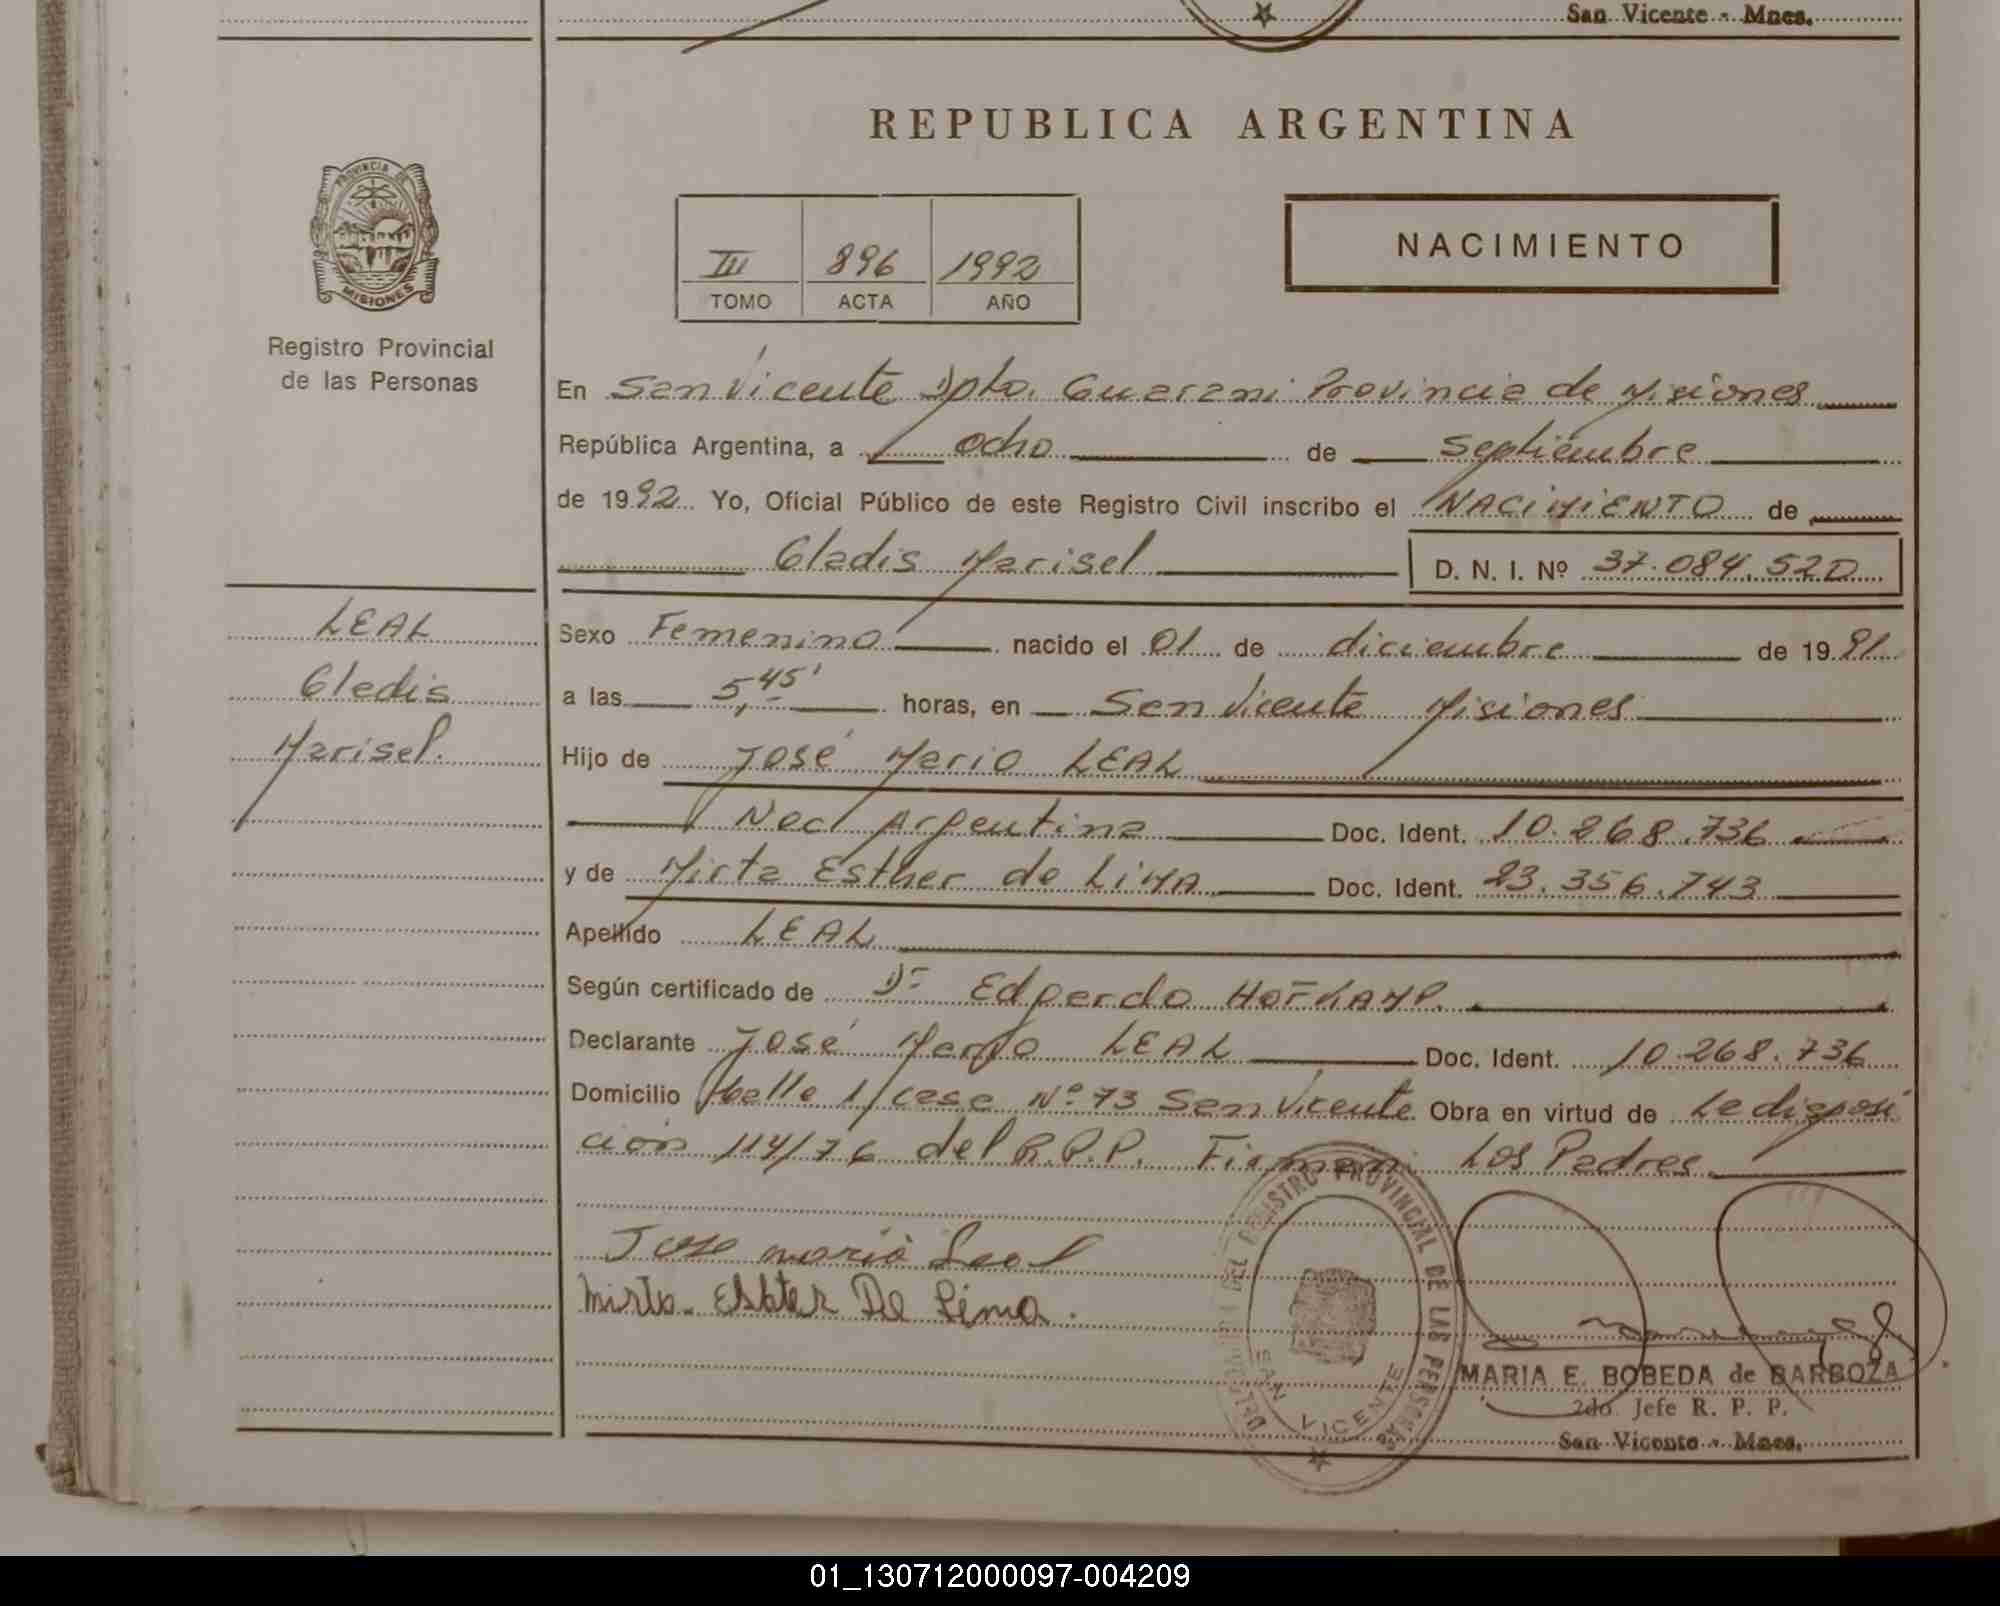 San Vicente - Mnes.
REPUBLICA ARGENTINA
PROVINCIA DE
MISIONES
Registro Provincial
de las Personas
III 896 1992
TOMO ACTA AÑO
NACIMIENTO
En San Vicente Dpto. Guarani Provincia de Misiones
República Argentina, a ocho de septiembre
de 1992 Yo, Oficial Público de este Registro Civil inscribo el NACIMIENTO de
Gladis Marisel D. N. I. Nº 37.084.520
LEAL
Gladis
Marisel.
Sexo Femenino nacido el 01 de diciembre de 1991
a las 5,45' horas, en San Vicente Misiones
Hijo de José Mario LEAL
Nac. Argentina Doc. Ident. 10.268.736
y de Mirta Esther de LiMA Doc. Ident. 23.356.743
Apellido LEAL
Según certificado de Dr Edgardo HOFKAMP.
Declarante José Mario LEAL Doc. Ident. 10.268.736
Domicilio Calle 1 casa Nº 73 San Vicente Obra en virtud de La disposi
cion 114/76 del R.P.P. Firman: Los Padres
Jose mario Leal
Mirta Esther De Lima.
DELEGACION DEL REGISTRO PROVINCIAL DE LAS PERSONAS
SAN VICENTE
MARIA E. BOBEDA de BARBOZA
2do Jefe R. P. P.
San Vicente - Mnes.
01_130712000097-004209